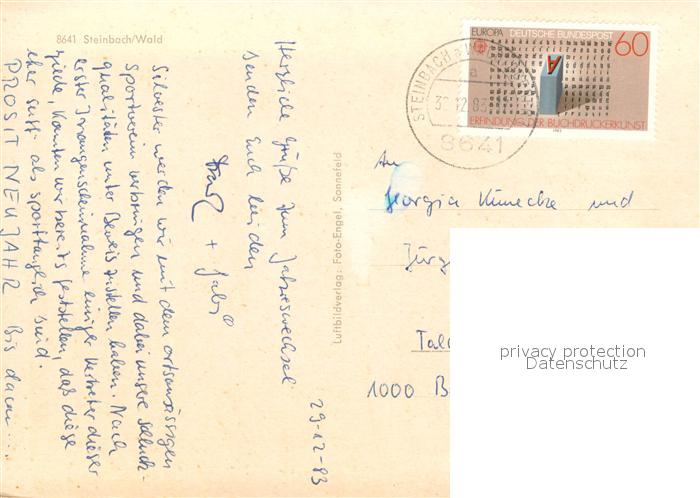 8641 Steinbach/Wald
29-12-83
Herzliche Grüße zum Jahreswechsel
senden Euch beiden
+ Gabi
Silvester werden wir mit dem ortsansässigen
Sportverein verbringen und dabei unsere
qualitäten unter Beweis zu stellen haben. Nach
erster Inaugenscheinnahme einiger Vertreter dieser
konnten wir bereits feststellen, daß diese
eher suff- als sporttauglich sind.
PROSIT NEUJAHR Bis dann...
Luftbildverlag: Foto-Engel, Sonnefeld
EUROPA DEUTSCHE BUNDESPOST 60
A
ERFINDUNG DER BUCHDRUCKERKUNST
1983
STEINBACH a W
a
30.12.83
8641
An
Georgia Künecke und
Jürg
Tal
1000 B
privacy protection
Datenschutz